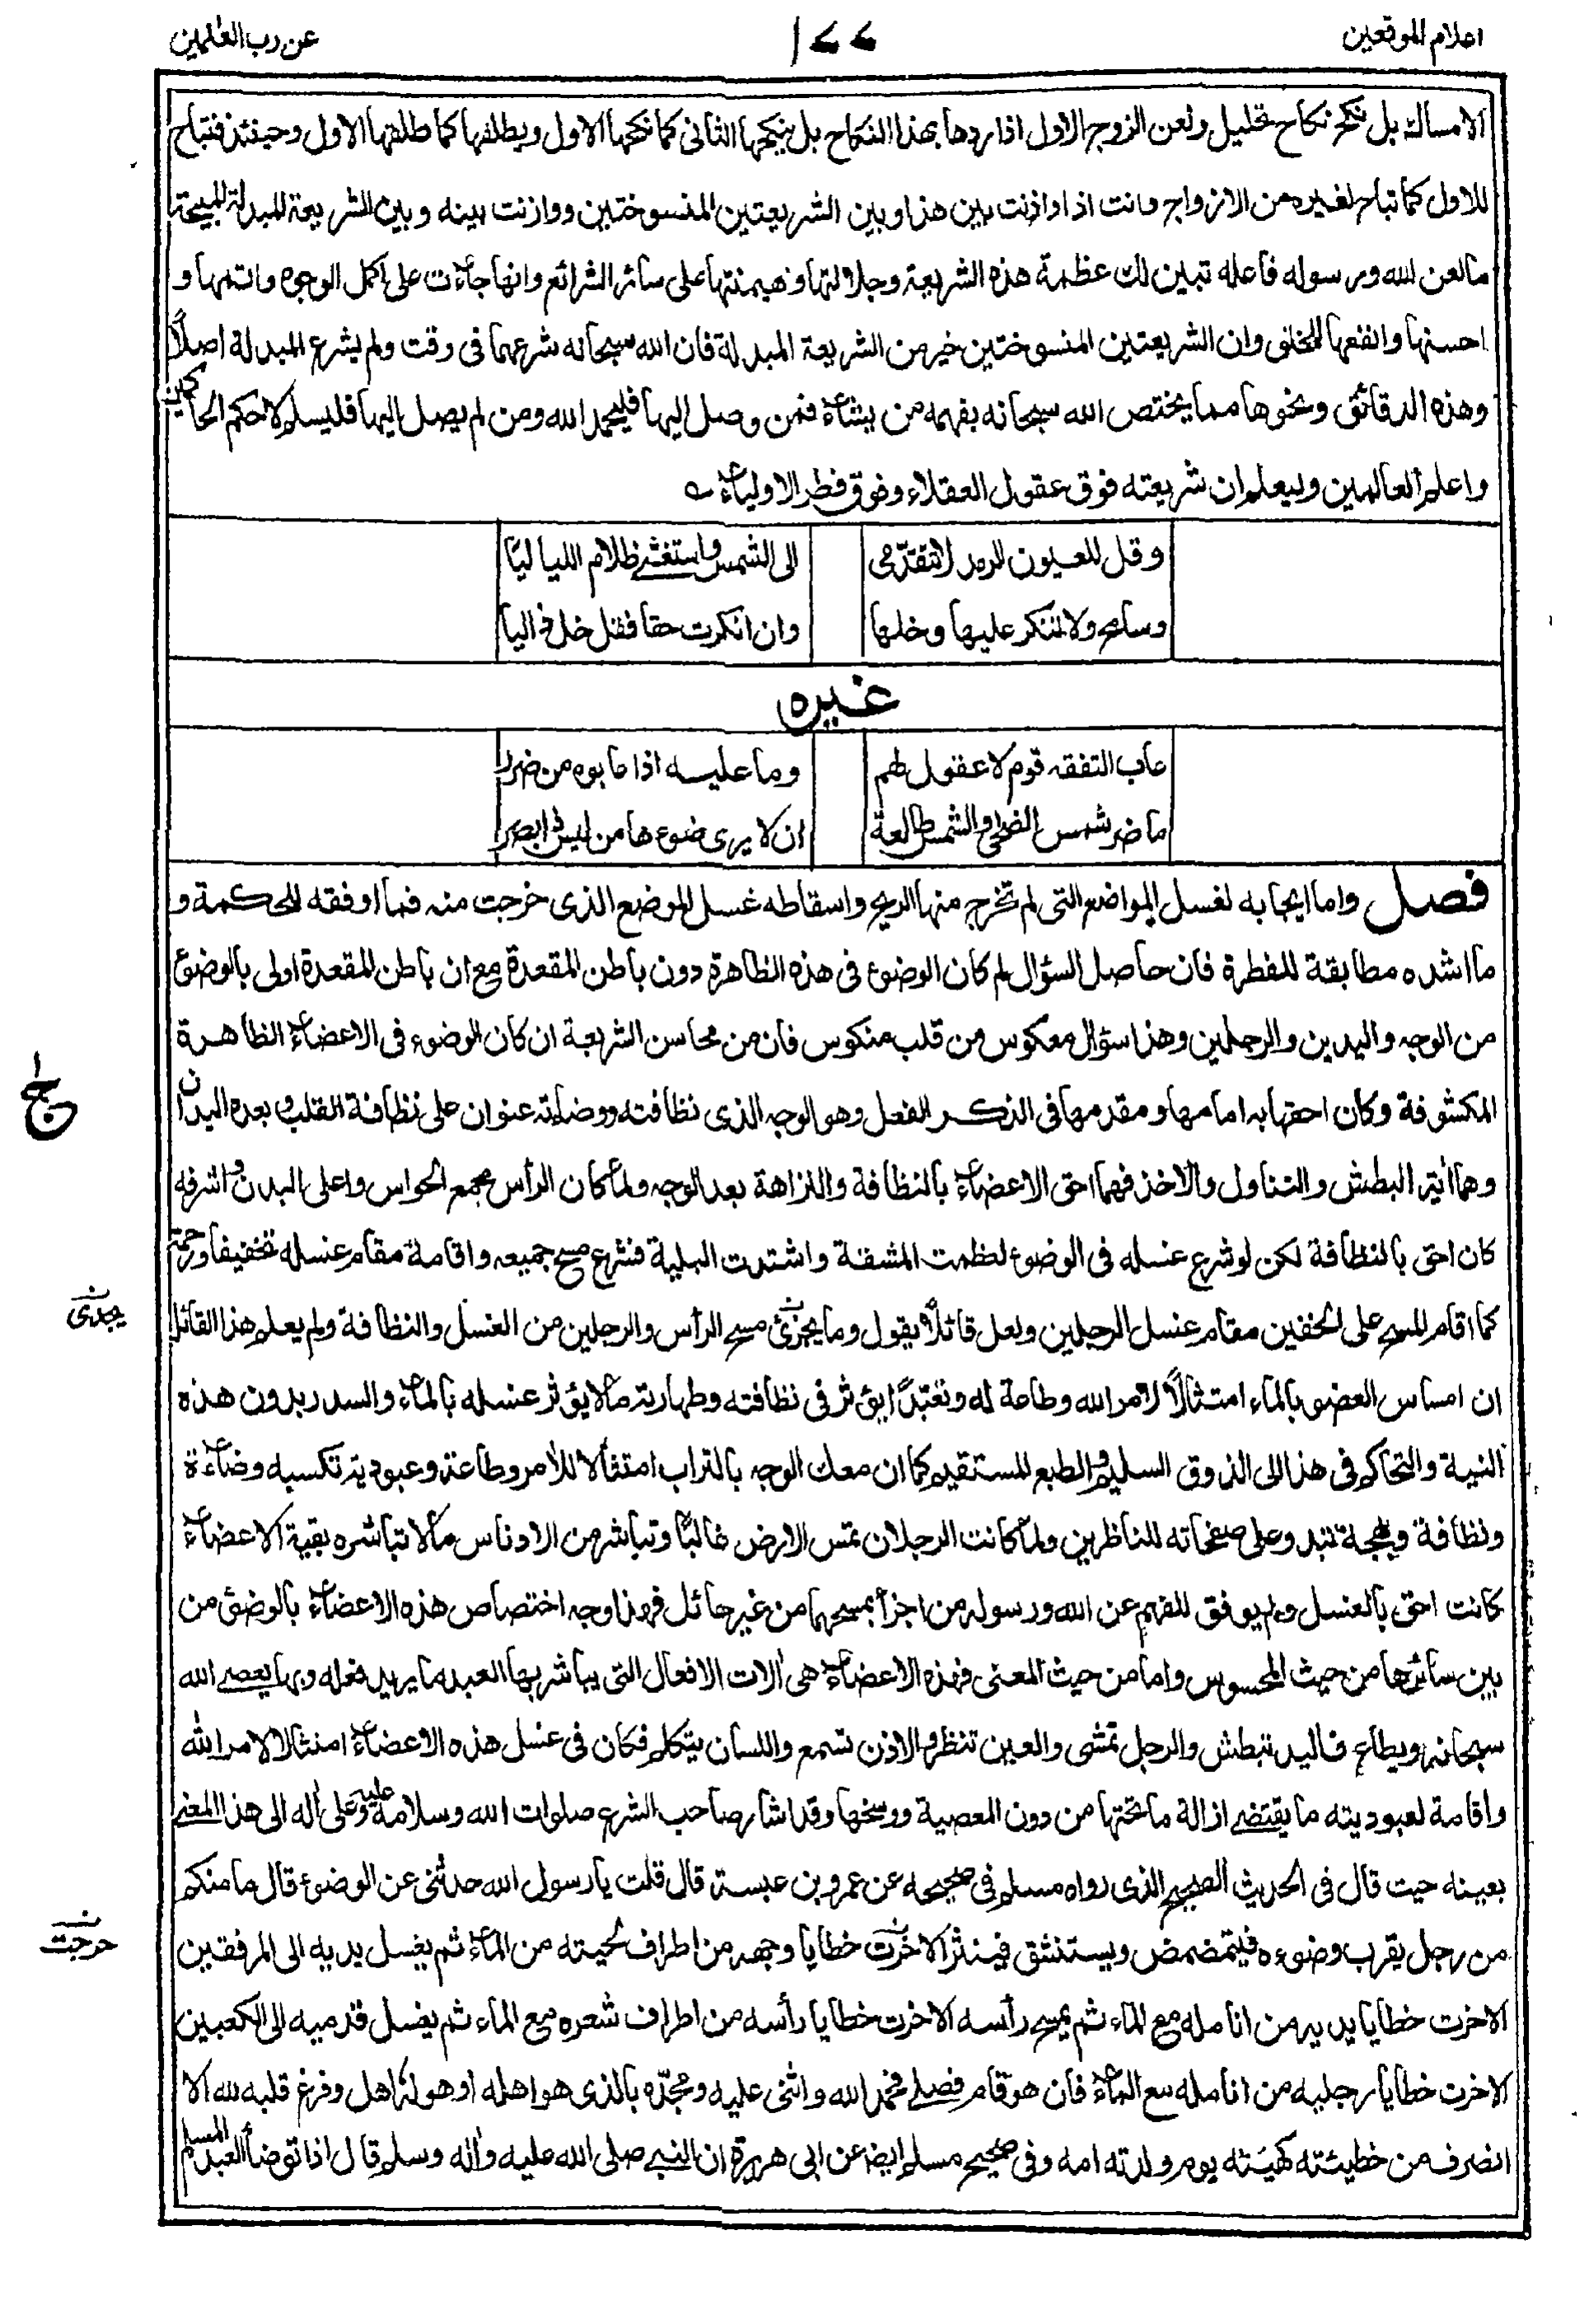 اعلام الموقعين
١٧٧
عن رب العٰلمين
الامساك بل نكح نكاح تحليل ولعن الزوج الاول اذا ردها بهذا النكاح بل ينكحها الثانى كما نكحها الاول ويطلقها كما طلقها الاول وحينئذ فتباح
للاول كما تباح لغيره من الازواج وانت اذا وازنت بين هذا وبين الشريعتين المنسوختين ووازنت بينه وبين الشريعة المبدلة المبيحة
ما لعن الله ورسوله فاعله تبين لك عظمة هذه الشريعة وجلالتها وهيمنتها على سائر الشرائع وانها جاءت على اكمل الوجوه واتمها و
احسنها وانفعها للخلق وان الشريعتين المنسوختين خير من الشريعة المبدلة فان الله سبحانه شرعهما فى وقت ولم يشرع المبدلة اصلًا
وهذه الدقائق ونحوها مما يختص الله سبحانه بفهمه من يشاء فمن وصل اليها فليحمد الله ومن لم يصل اليها فليسلم لاحكم الحاكمين
واعلم العالمين وليعلم ان شريعته فوق عقول العقلاء وفوق فطر الاولياء
وقل للعيون الرمد لا تتقدّمى
الى الشمس واستغشى ظلام اللياليا
وسامح ولا تنكر عليها وخلها
وان انكرت حقا فقل خل ذا ليا
غيره
عاب التفقه قوم لا عقول لهم
وما عليه اذا عابوه من ضرر
ما ضر شمس الضحى والشمس طالعة
ان لا يرى ضوءها من ليس ذا بصر
فصل واما ايجابه لغسل المواضع التى لم تخرج منها الريح واسقاطه غسل الموضع الذى خرجت منه فما اوفقه للحكمة و
ما اشده مطابقة للفطرة فان حاصل السؤال لم كان الوضوء فى هذه الظاهرة دون باطن المقعدة مع ان باطن المقعدة اولى بالوضوء
من الوجه واليدين والرجلين وهذا سؤال معكوس من قلب منكوس فان من محاسن الشريعة ان كان الوضوء فى الاعضاء الظاهرة
المكشوفة وكان احقها به امامها ومقدمها فى الذكر والفعل وهو الوجه الذى نظافته ووضاءته عنوان على نظافة القلب وبعده اليدان
وهما اٰلة البطش والتناول والاخذ فهما احق الاعضاء بالنظافة والنزاهة بعد الوجه ولما كان الرأس مجمع الحواس واعلى البدن واشرفه
كان احق بالنظافة لكن لو شرع غسله فى الوضوء لعظمت المشقة واشتدت البلية فشرع مسح جميعه واقامة مقام غسله تخفيفا ورحمة
كما اقام المسح على الخفين مقام غسل الرجلين ولعل قائلًا يقول وما يجزئ مسح الرأس والرجلين من الغسل والنظافة ولم يعلم هذا القائل
ان امساس العضو بالماء امتثالًا لامر الله وطاعة له وتعبّدًا يؤثر فى نظافته وطهارته ما لا يؤثر غسله بالماء والسدر بدون هذه
النية والتحاكم فى هذا الى الذوق السليم والطبع المستقيم كما ان معك الوجه بالتراب امتثالا للامر وطاعة وعبودية تكسبه وضاءة
ونظافة وبهجة تبدو على صفحاته للناظرين ولما كانت الرجلان تمس الارض غالبًا وتباشر من الادناس ما لا تباشره بقية الاعضاء
كانت احق بالغسل ولم يوفق للفهم عن الله ورسوله من اجزأ بمسحهما من غير حائل فهذا وجه اختصاص هذه الاعضاء بالوضوء من
بين سائرها من حيث المحسوس واما من حيث المعنى فهذه الاعضاء هى اٰلات الافعال التى يباشر بها العبد ما يريد فعله وبها يعصى الله
سبحانه ويطاع فاليد تبطش والرجل تمشى والعين تنظر والاذن تسمع واللسان يتكلم فكان فى غسل هذه الاعضاء امتثالا لامر الله
واقامة لعبوديته ما يقتضى ازالة ما تحتها من درن المعصية ووسخها وقد اشار صاحب الشرع صلوات الله وسلامه عليه وعلى اٰله الى هذا المعنى
بعينه حيث قال فى الحديث الصحيح الذى رواه مسلم فى صحيحه عن عمرو بن عبسة قال قلت يا رسول الله حدثنى عن الوضوء قال ما منكم
من رجل يقرب وضوءه فيتمضمض ويستنشق فينثر الا خرت خطايا وجهه من اطراف لحيته من الماء ثم يغسل يديه الى المرفقين
الا خرت خطايا يديه من انامله مع الماء ثم يمسح رأسه الا خرت خطايا رأسه من اطراف شعره مع الماء ثم يغسل قدميه الى الكعبين
الا خرت خطايا رجليه من انامله مع الماء فان هو قام فصلى فحمد الله واثنى عليه ومجّده بالذى هو اهله او هو له اهل وفرغ قلبه لله الا
انصرف من خطيئته كهيئته يوم ولدته امه وفى صحيح مسلم ايضا عن ابى هريرة ان النبى صلى الله عليه واٰله وسلم قال اذا توضأ العبد المسلم
يجدى
خرجت